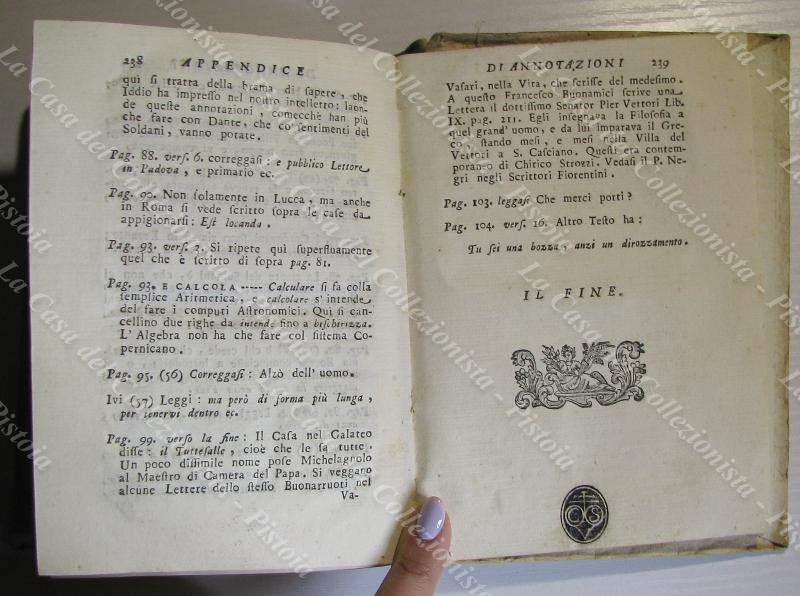 238 APPENDICE
quì si tratta della brama di sapere, che
Iddio ha impresso nel nostro intelletto: laon-
de queste annotazioni, comecchè han più
che fare con Dante, che co' sentimenti del
Soldani, vanno potate.
Pag. 88. vers. 6. correggasi: e pubblico Lettore
in Padova, e primario ec.
Pag. 90. Non solamente in Lucca, ma anche
in Roma si vede scritto sopra le case da
appigionarsi: Est locanda.
Pag. 93. vers. 2. Si ripete quì superfluamente
quel che è scritto di sopra pag. 81.
Pag. 93. E CALCOLA ----- Calculare si fa colla
semplice Aritmetica, e calcolare s'intende
del fare i computi Astronomici. Qui si can-
cellino due righe da intende fino a bischirizza.
L'Algebra non ha che fare col sistema Co-
pernicano.
Pag. 95. (56) Correggasi: Alzò dell' uomo.
Ivi (57) Leggi: ma però di forma più lunga,
per tenervi dentro ec.
Pag. 99. verso la fine: Il Casa nel Galateo
disse: il Tuttesalle, cioè che le sa tutte.
Un poco dissimile nome pose Michelagnolo
al Maestro di Camera del Papa. Si veggano
alcune Lettere dello stesso Buonarruoti nel
Va-
DI ANNOTAZIONI 239
Vasari, nella Vita, che scrisse del medesimo.
A questo Francesco Buonamici scrive una
Lettera il dottissimo Senator Pier Vettori Lib.
IX. pag. 211. Egli insegnava la Filosofia a
quel grand' uomo, e da lui imparava il Gre-
co, stando mesi, e mesi nella Villa del
Vettori a S. Casciano. Questi era contem-
poraneo di Chirico Strozzi. Vedasi il P. Ne-
gri negli Scrittori Fiorentini.
Pag. 103. leggasi Che merci porti?
Pag. 104. vers. 16. Altro Testo ha:
Tu sei una bozza, anzi un dirozzamento.
IL FINE.
CS
La Casa del Collezionista - Pistoia